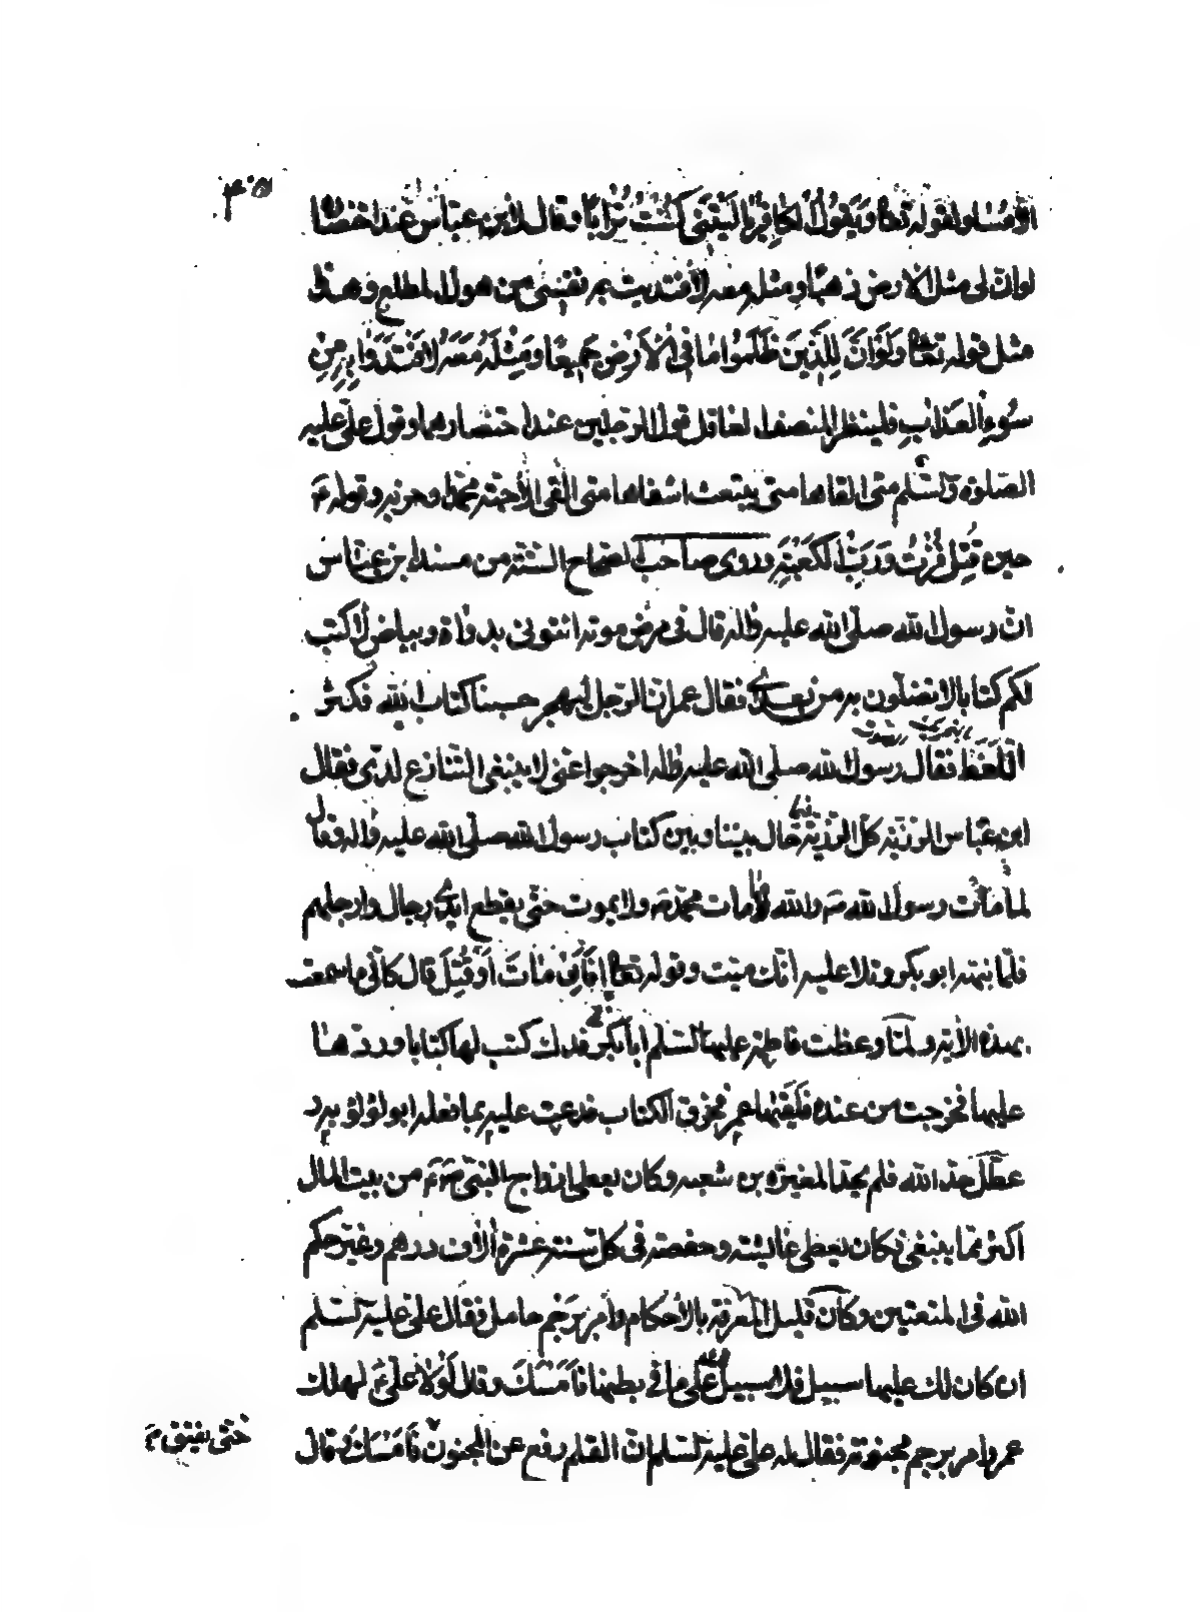 ٣٠٥
الا مساوا لقوله تعا وَيَقُولُ الكَافِرُ يَا لَيْتَنِي كُنْتُ تُرَابًا وقال لابن عباس عند احتضاره
لو ان لي مثل الارض ذهبًا ومثله معه لافتديت به نفسي من هول المطلع وهذا
مثل قوله تعا وَلَوْ اَنَّ لِلَّذِينَ ظَلَمُوا مَا فِي الْاَرْضِ جَمِيعًا وَمِثْلَهُ مَعَهُ لَافْتَدَوْا بِهِ مِنْ
سُوءِ العَذَابِ فلينظر المنصف العاقل قول الرجلين عند احتضارهما وقول علي عليه
الصلوة والسلم متى القاها متى يبتعث اشقاها متى القى الاحبة محمدا وحزبه وقوله ع
حين قُتِلَ فُزْتُ وَرَبِّ الكَعْبَةِ وروى صاحب الصحاح الستة من مسند ابن عباس
ان رسول الله صلى الله عليه واله قال في مرض موته ائتوني بدواة وبياض لاكتب
لكم كتابا لا تضلون به من بعدي فقال عمر ان الرجل ليهجر حسبنا كتاب الله فكثر
اللغط فقال رسول الله صلى الله عليه واله اخرجوا عني لا ينبغي التنازع لدي فقال
ابن عباس الرزية كل الرزية ما حال بيننا وبين كتاب رسول الله صلى الله عليه واله وقال
لما مات رسول الله ص والله ما مات محمد ص ولا يموت حتى يقطع ايدي رجال وارجلهم
فلما نبهه ابو بكر وتلا عليه انك ميت وقوله تعا اَفَاِنْ مَاتَ اَوْ قُتِلَ قال كاني ما سمعت
بهذه الاية ولما وعظت فاطمة عليها السلم ابا بكر في فدك كتب لها كتابا وردها
عليها فخرجت من عنده فلقيها عمر فخرق الكتاب فدعت عليه بما فعله ابو لؤلؤ به و
عطل حد الله فلم يحد المغيرة بن شعبه وكان يعطي ازواج النبي ص من بيت المال
اكثر مما ينبغي فكان يعطي عايشة وحفصة في كل سنة عشرة آلاف درهم وغير حكم
الله في المتعتين وكان قليل المعرفة بالاحكام وامر برجم حامل فقال علي عليه السلم
ان كان لك عليها سبيل فلا سبيل لك على ما في بطنها فَاَمْسَكَ وقال لَوْلَا علي ع لهلك
عمر وامر برجم مجنونة فقال له علي عليه السلم ان القلم رفع عن المجنون فَاَمْسَكَ وقال
حتى يفيق م